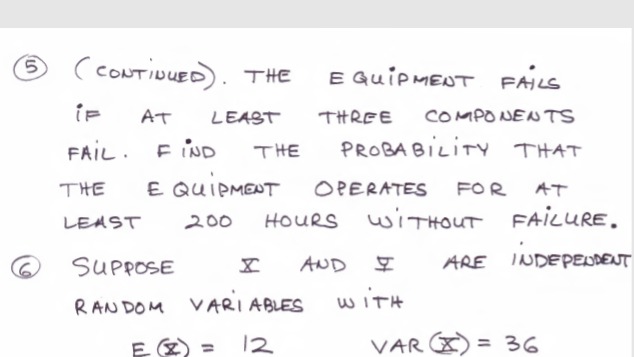 ⑤ (CONTINUED). THE EQUIPMENT FAILS
IF AT LEAST THREE COMPONENTS
FAIL. FIND THE PROBABILITY THAT
THE EQUIPMENT OPERATES FOR AT
LEAST 200 HOURS WITHOUT FAILURE.
⑥ SUPPOSE X AND Y ARE INDEPENDENT
RANDOM VARIABLES WITH
E(X) = 12 VAR(X) = 36